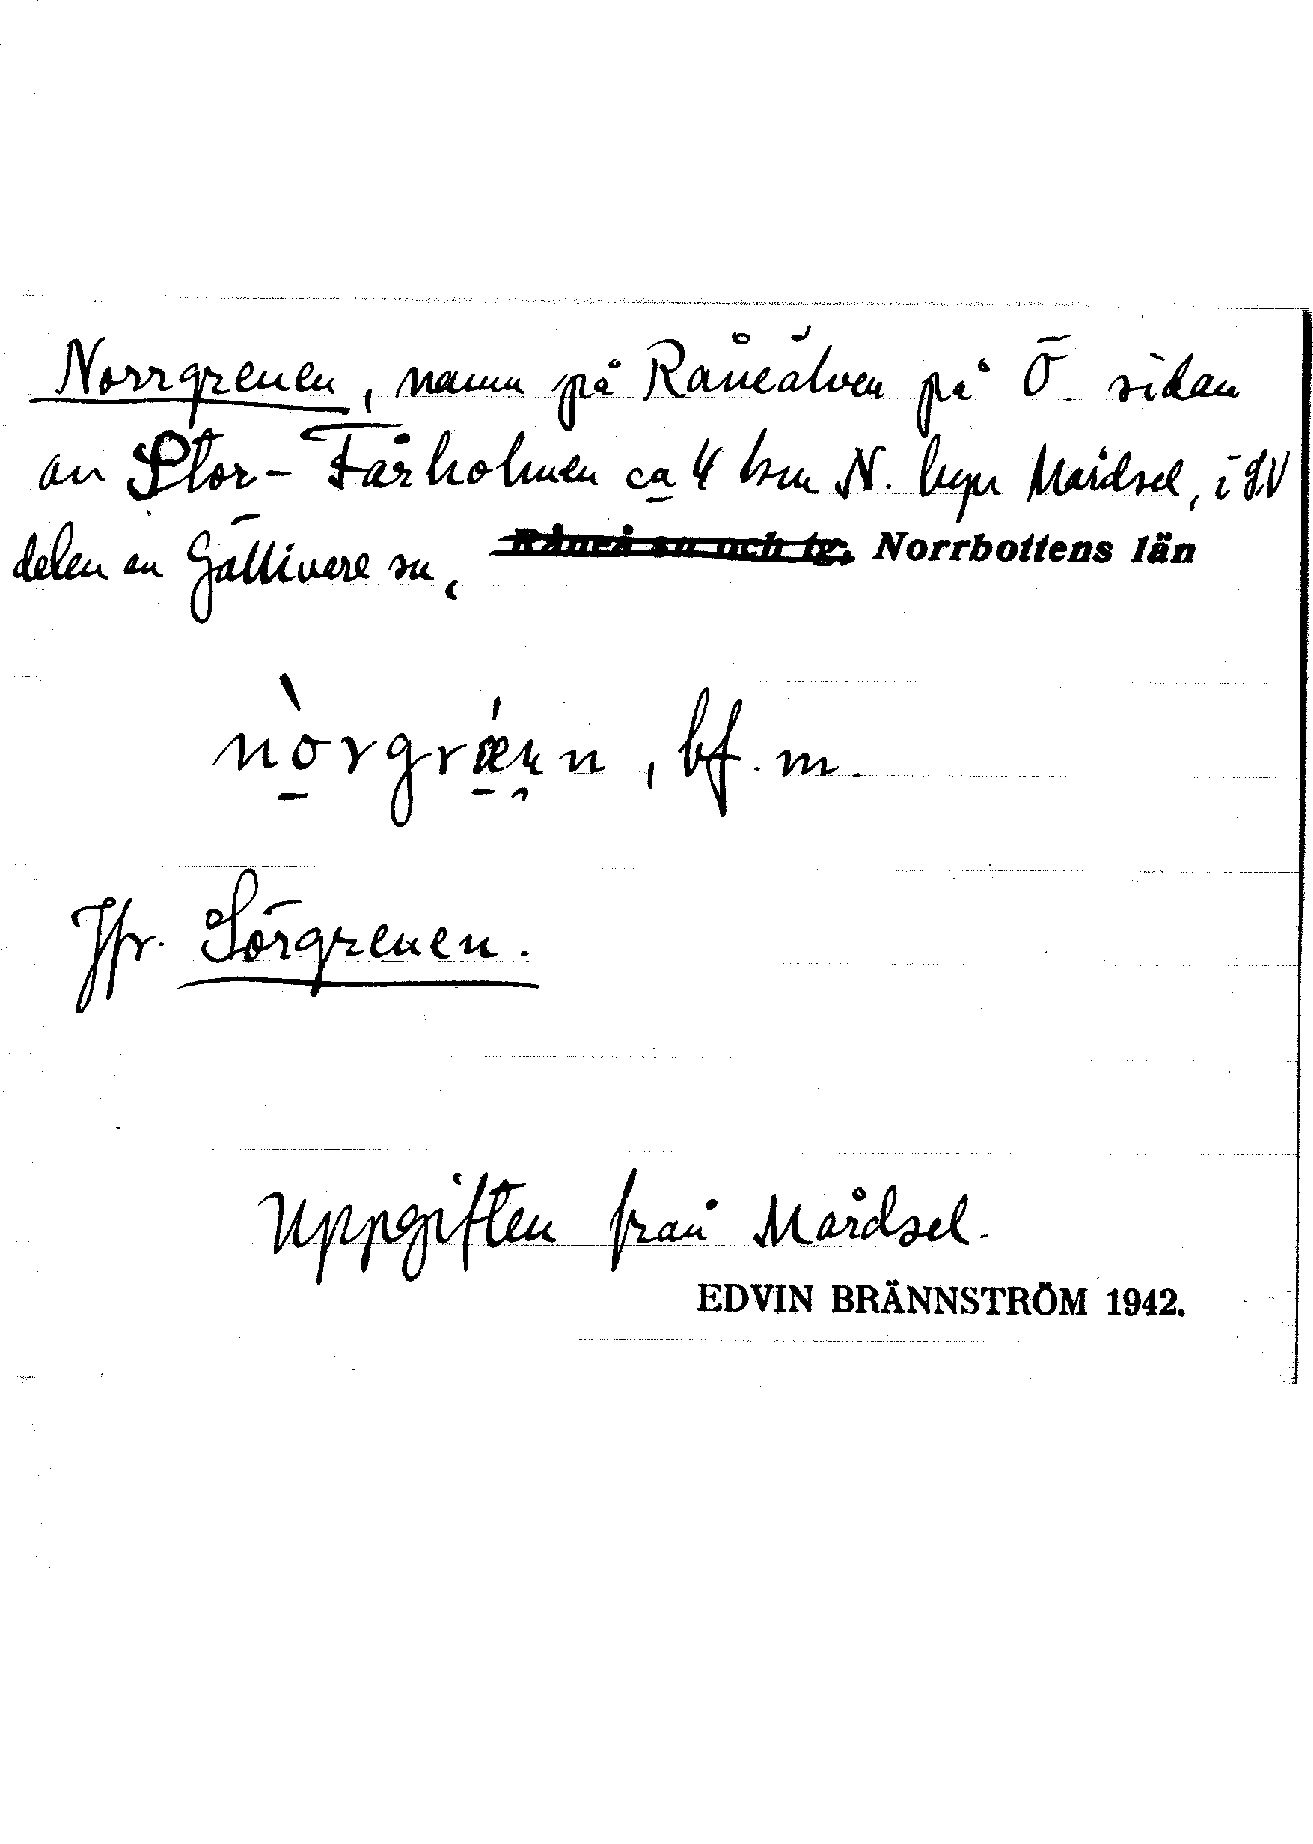 Norrgrenen, namn på Råneälven på Ö. sidan
av Stor-Fårholmen ca 4 km N. byn Mårdsel, i SV
delen av Gällivare sn, Råneå sn och tg. Norrbottens län
nòrgrǽnn, bf. m.
Jfr. Sörgrenen.
Uppgiften från Mårdsel.
EDVIN BRÄNNSTRÖM 1942.